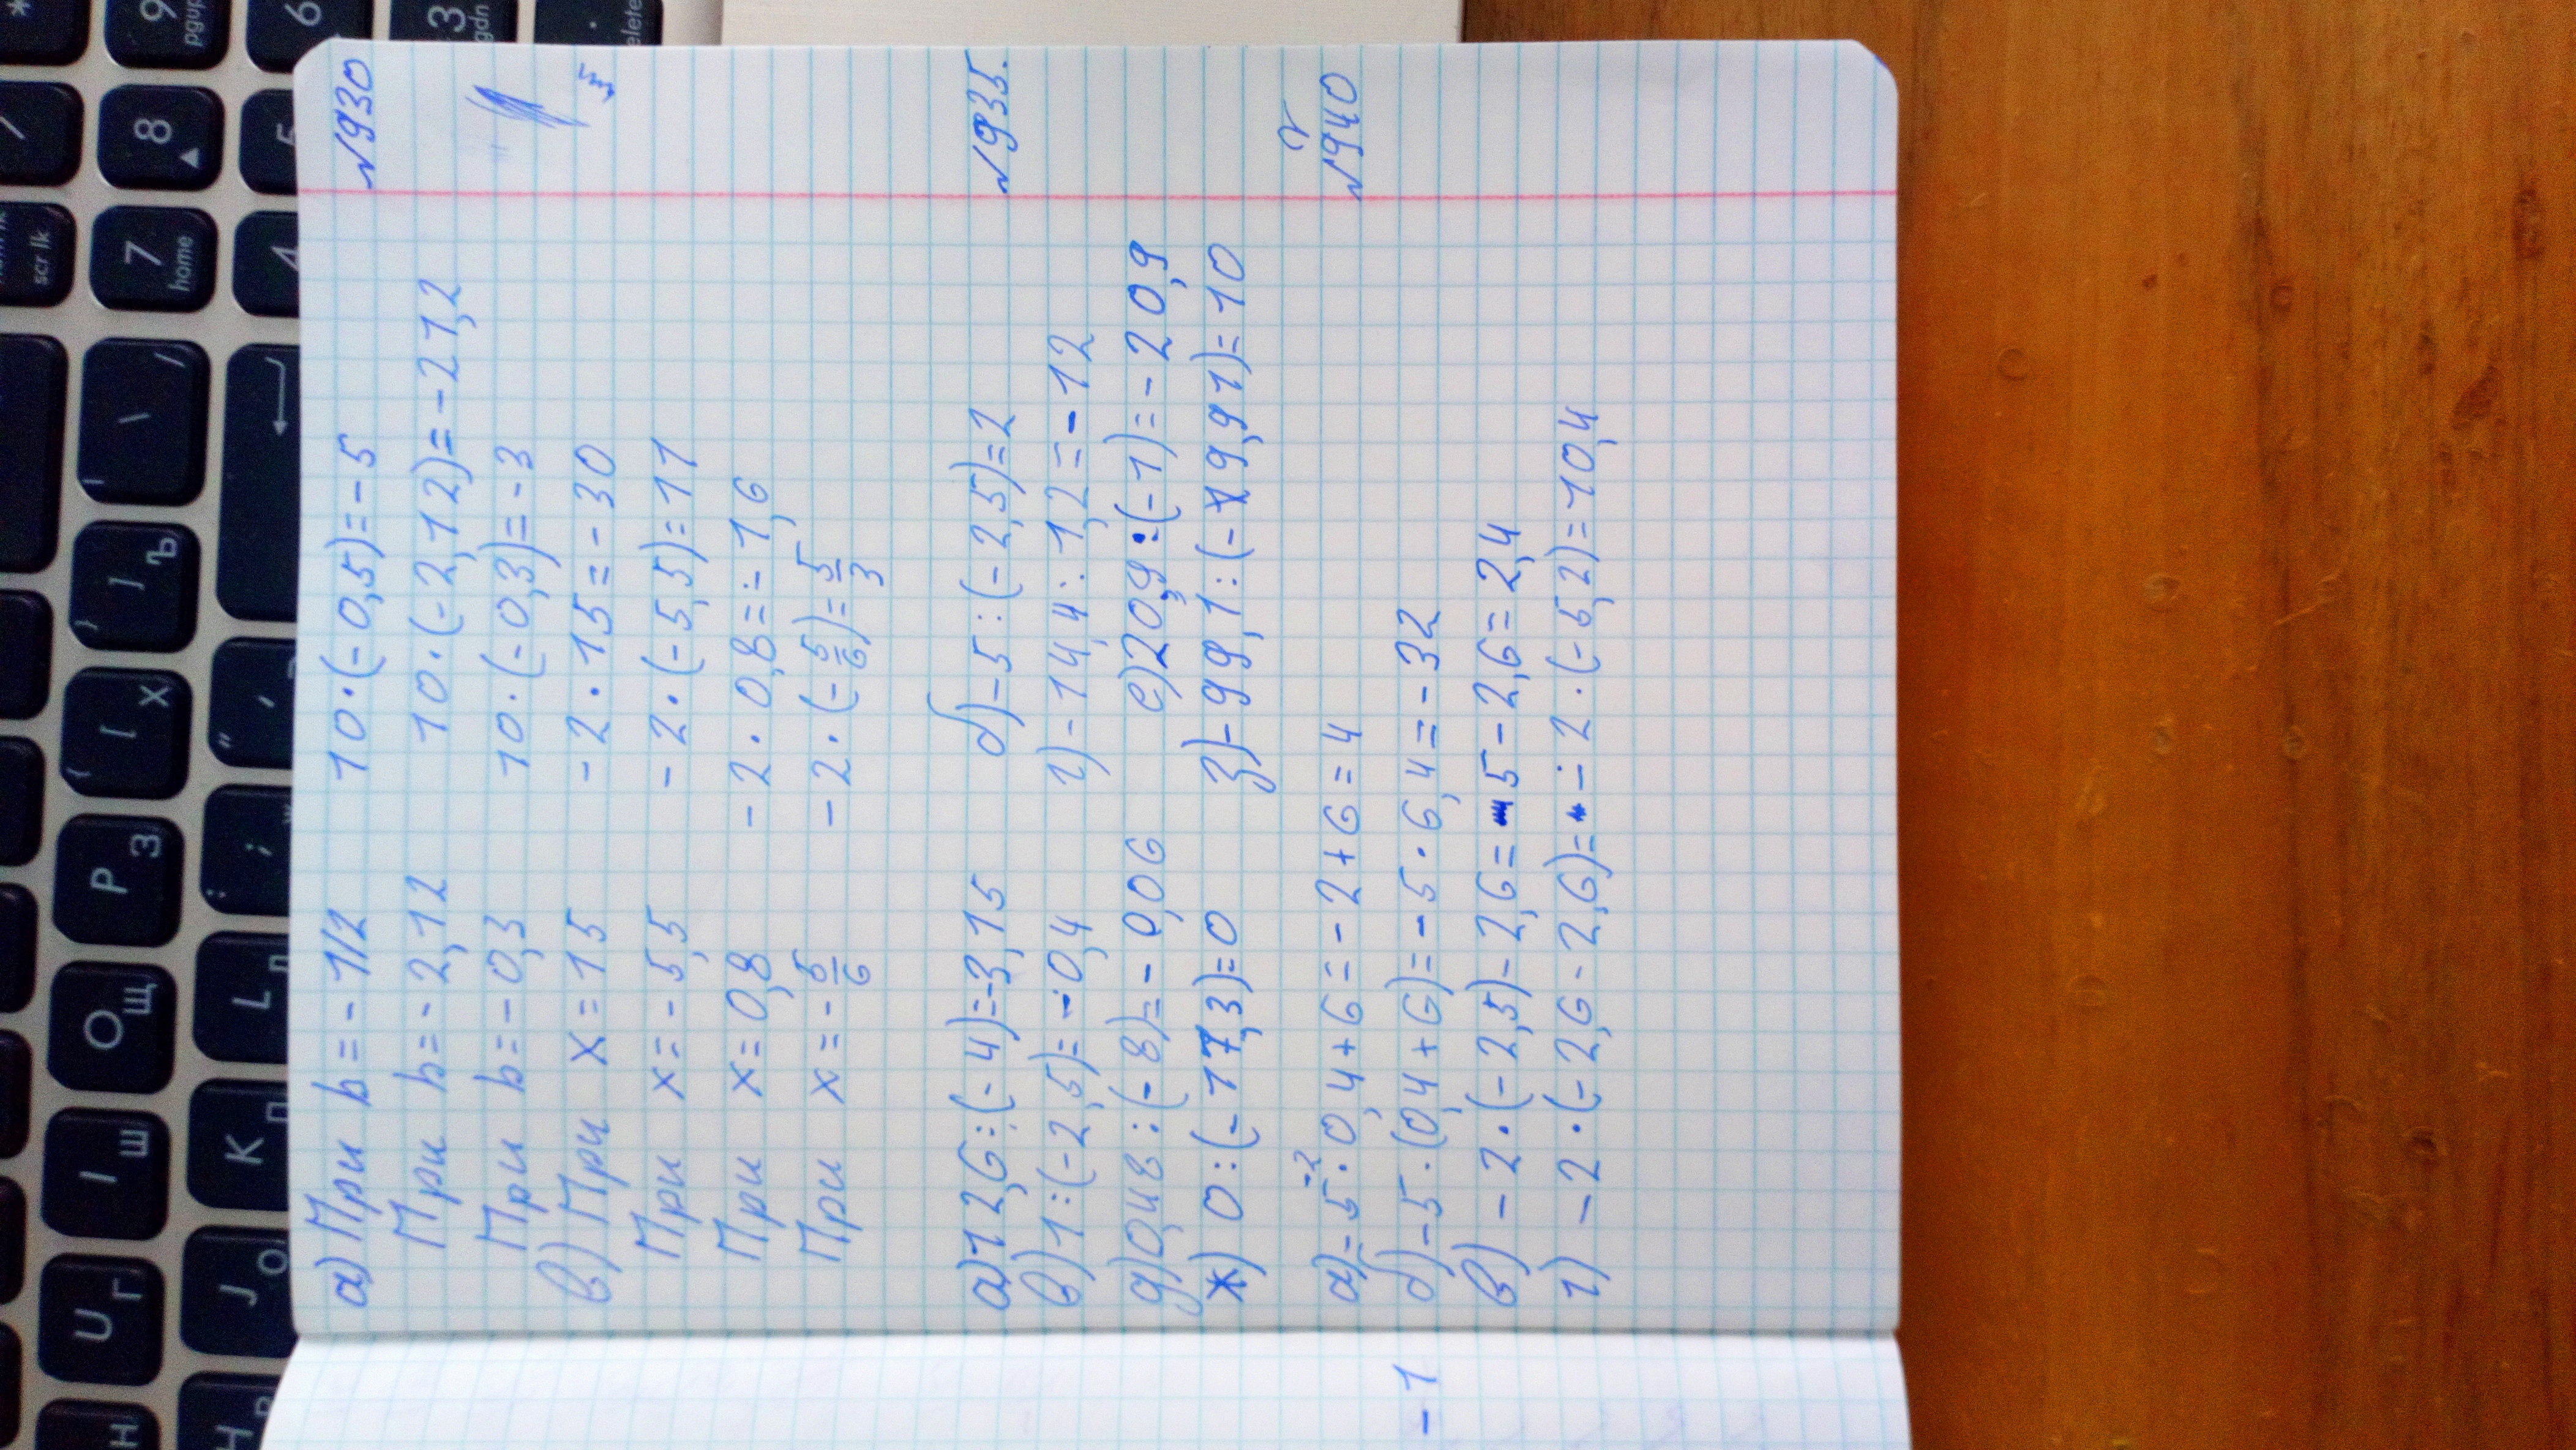 №930
а) При b=-1/2 10·(-0,5)=-5
При b=-2,12 10·(-2,12)=-21,2
При b=-0,3 10·(-0,3)=-3
в) При x=15 -2·15=-30
При x=-5,5 -2·(-5,5)=11
При x=0,8 -2·0,8=-1,6
При x=-5/6 -2·(-5/6)=5/3
№935.
а) 12,6:(-4)=-3,15 б) -5:(-2,5)=2
в) 1:(-2,5)=-0,4 г) -14,4:1,2=-12
д) 0,48:(-8)=-0,06 е) 20,9:(-1)=-20,9
ж) 0:(-17,3)=0 з) -99,1:(-9,91)=10
№940
-2
а) -5·0,4+6=-2+6=4
б) -5·(0,4+6)=-5·6,4=-32
в) -2·(-2,5)-2,6=5-2,6=2,4
г) -2·(-2,6-2,6)=-2·(-5,2)=10,4
-1
* 9 pgup 6 3 gdn . elete
/ 8 5
scr lk 7 home 4
\ / |
} ] Ъ
{ [ Х " '
P З : ; Ж
O Щ L Д
I Ш K Л
U Г J О
H